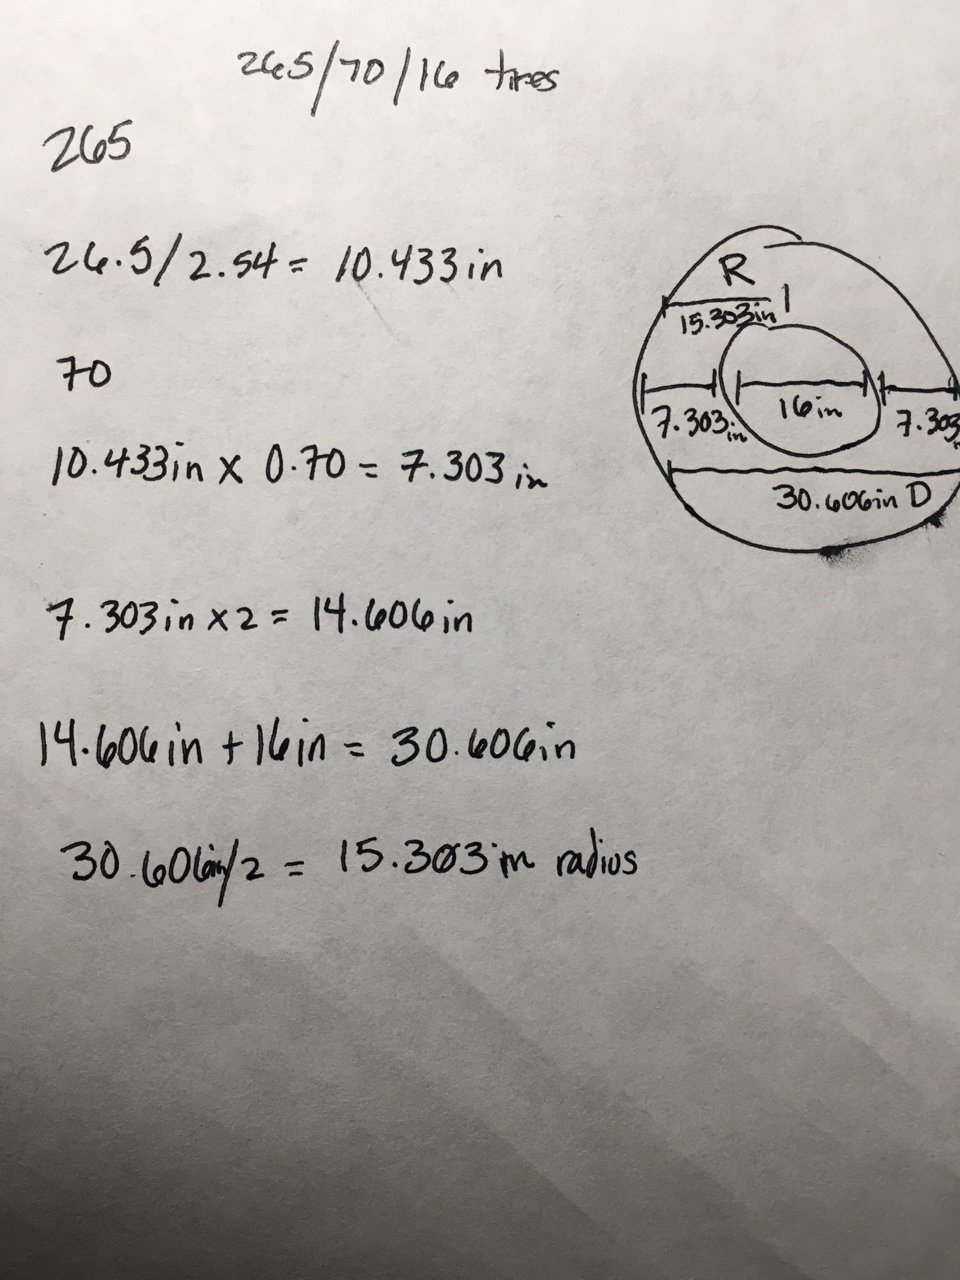 265/70/16 tires
265
26.5/2.54 = 10.433in
70
10.433in x 0.70 = 7.303in
7.303in x 2 = 14.606in
14.606in + 16in = 30.606in
30.606in/2 = 15.303in radius
R
15.303in
7.303in
16in
7.303in
30.606in D